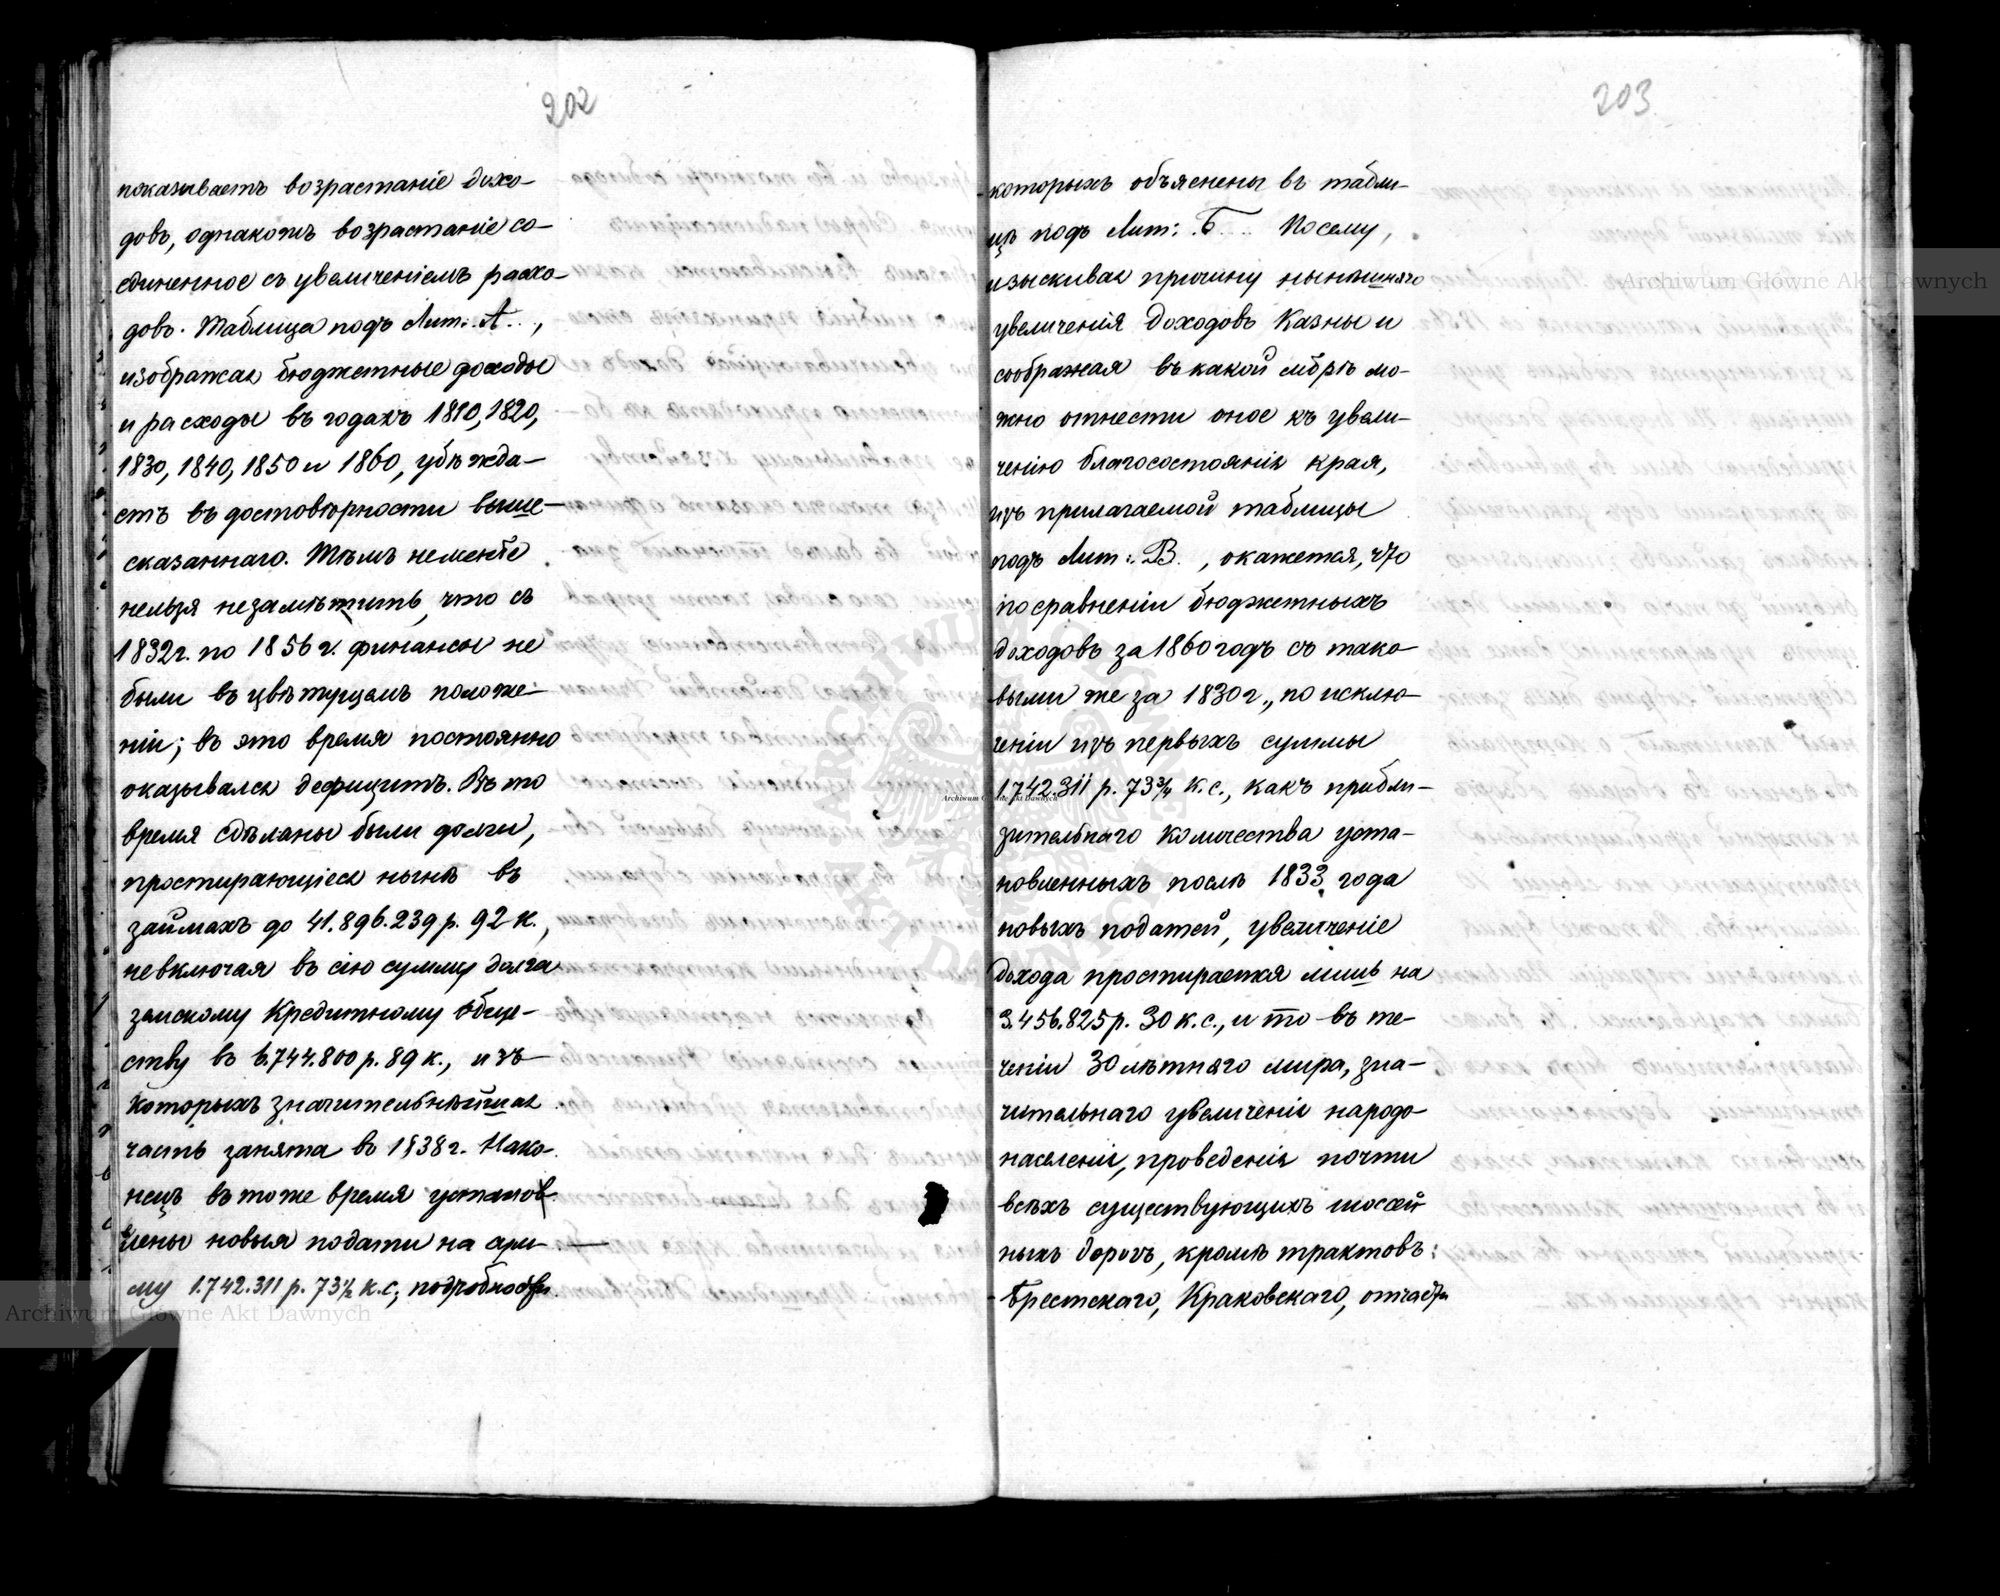 202
показываетъ возрастаніе дохо-
довъ, однакожъ возрастаніе со-
единенное съ увеличеніемъ расхо-
довъ. Таблица подъ Лит: А.,
изображая бюджетные доходы
и расходы въ годахъ 1810, 1820,
1830, 1840, 1850 и 1860, убѣжда-
етъ въ достовѣрности выше-
сказаннаго. Тѣмъ неменѣе
нельзя незамѣтить, что съ
1832 г. по 1856 г. финансы не
были въ цвѣтущемъ положе-
ніи; въ это время постоянно
оказывался дефицитъ. Въ то
время сдѣланы были долги,
простирающіеся нынѣ въ
займахъ до 41.896.239 р. 92 к.,
невключая въ сію сумму долга
земскому Кредитному Обще-
ству въ 6.744.800 р. 89 к., изъ
которыхъ значительнѣйшая
часть занята въ 1838 г. Нако-
нецъ въ тоже время установ
лены новыя подати на сум-
му 1.742.311 р. 73½ к.с; подробности
203
которыхъ объяснены въ табли-
цѣ подъ Лит: Б. Посему,
изыскивая причину нынѣшняго
увеличенія доходовъ Казны и
соображая въ какой мѣрѣ мо-
жно отнести оное къ увели-
ченію благосостоянія края,
изъ прилагаемой таблицы
подъ Лит: В., окажется, что
по сравненіи бюджетныхъ
доходовъ за 1860 годъ съ тако-
выми же за 1830 г., по исклю-
ченіи изъ первыхъ суммы
1.742.311 р. 73¾ к.с., какъ прибли-
зительнаго количества уста-
новленныхъ послѣ 1833 года
новыхъ податей, увеличеніе
дохода простирается лишь на
3.456.825 р. 30 к.с., и то въ те-
ченіи 30 лѣтняго мира, зна-
чительнаго увеличенія народо-
населенія, проведенія почти
всѣхъ существующихъ шоссей
ныхъ дорогъ, кромѣ трактовъ:
Брестскаго, Краковскаго, отчасти
Archiwum Główne Akt Dawnych
Archiwum Główne Akt Dawnych
Archiwum Główne Akt Dawnych
ARCHIWUM GŁÓWNE
AKT DAWNYCH